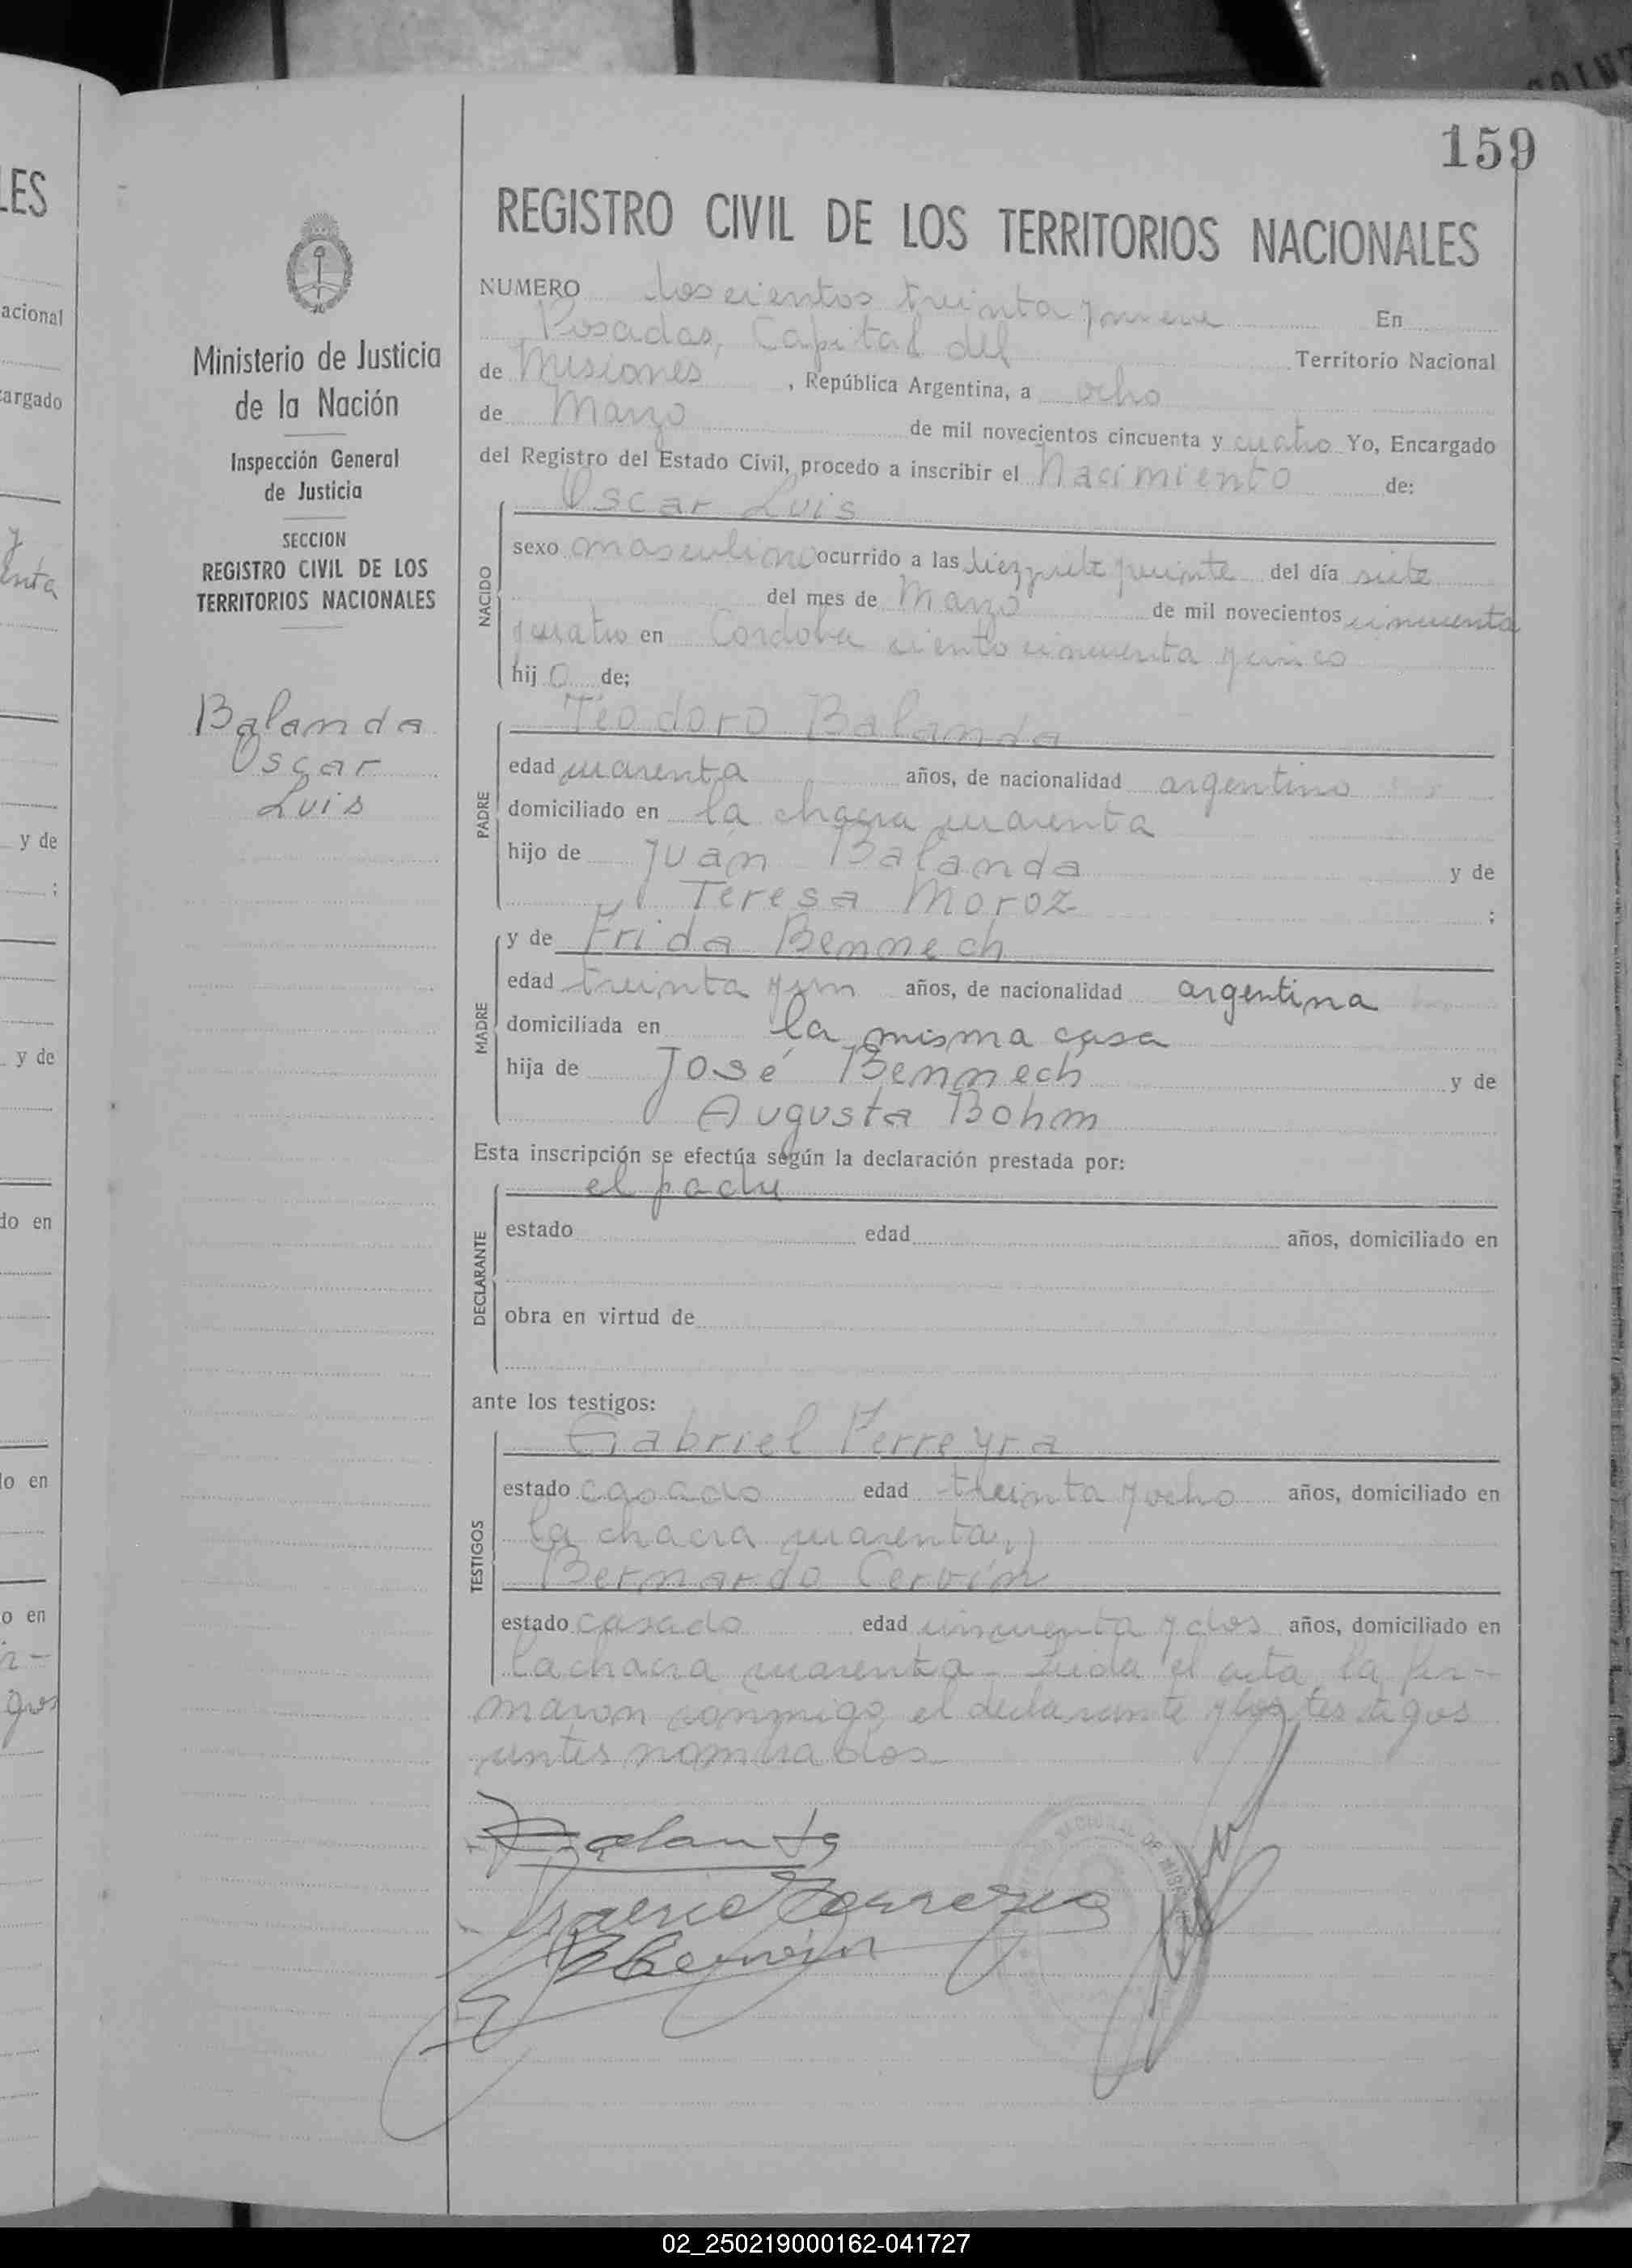 159
REGISTRO CIVIL DE LOS TERRITORIOS NACIONALES
NUMERO doscientos treinta y nueve En
Posadas, Capital del Territorio Nacional
de Misiones, República Argentina, a ocho
de Marzo de mil novecientos cincuenta y cuatro Yo, Encargado
del Registro del Estado Civil, procedo a inscribir el Nacimiento de:
Oscar Luis
NACIDO
sexo masculino ocurrido a las diez y siete y veinte del día siete
del mes de Marzo de mil novecientos cincuenta
y cuatro en Cordoba ciento cincuenta y cinco
hij o de;
Teodoro Balanda
PADRE
edad cuarenta años, de nacionalidad argentino
domiciliado en la chacra cuarenta
hijo de Juan Balanda y de
Teresa Moroz ;
y de Frida Bennech
MADRE
edad treinta y un años, de nacionalidad argentina
domiciliada en la misma casa
hija de José Bennech y de
Augusta Bohm
Esta inscripción se efectúa según la declaración prestada por:
el padre
DECLARANTE
estado edad años, domiciliado en
obra en virtud de
ante los testigos:
Gabriel Ferreyra
TESTIGOS
estado casado edad treinta y ocho años, domiciliado en
la chacra cuarenta, y
Bernardo Cervín
estado casado edad cincuenta y dos años, domiciliado en
la chacra cuarenta - Leida el acta, la fir-
maron conmigo el declarante y los testigos
antes nombrados
Ministerio de Justicia
de la Nación
Inspección General
de Justicia
SECCION
REGISTRO CIVIL DE LOS
TERRITORIOS NACIONALES
Balanda
Oscar
Luis
LES
acional
cargado
y
enta
y de
;
y de
do en
lo en
o en
r-
gos
02_250219000162-041727